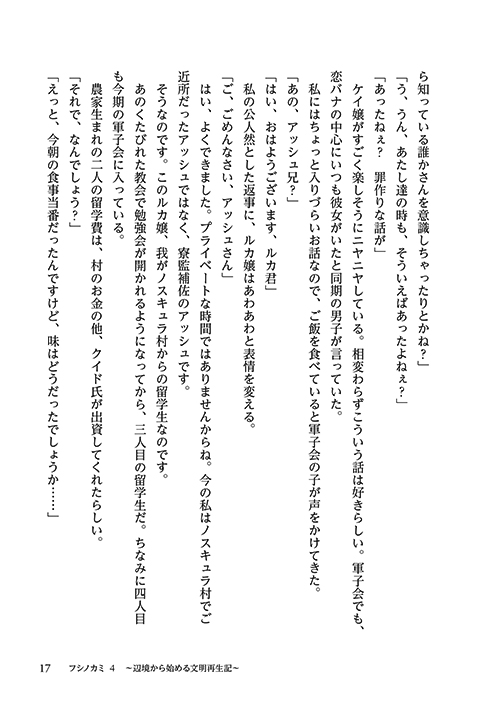 ら知っている誰かさんを意識しちゃったりとかね？」
「う、うん、あたし達の時も、そういえばあったよねぇ？」
「あったねぇ？　罪作りな話が」
　ケイ嬢がすごく楽しそうにニヤニヤしている。相変わらずこういう話は好きらしい。軍子会でも、
恋バナの中心にいつも彼女がいたと同期の男子が言っていた。
　私にはちょっと入りづらいお話なので、ご飯を食べていると軍子会の子が声をかけてきた。
「あの、アッシュ兄？」
「はい、おはようございます、ルカ君」
　私の公人然とした返事に、ルカ嬢はあわあわと表情を変える。
「ご、ごめんなさい、アッシュさん」
　はい、よくできました。プライベートな時間ではありませんからね。今の私はノスキュラ村でご
近所だったアッシュではなく、寮監補佐のアッシュです。
　そうなのです。このルカ嬢、我がノスキュラ村からの留学生なのです。
　あのくたびれた教会で勉強会が開かれるようになってから、三人目の留学生だ。ちなみに四人目
も今期の軍子会に入っている。
　農家生まれの二人の留学費は、村のお金の他、クイド氏が出資してくれたらしい。
「それで、なんでしょう？」
「えっと、今朝の食事当番だったんですけど、味はどうだったでしょうか……」
17　フシノカミ 4　～辺境から始める文明再生記～